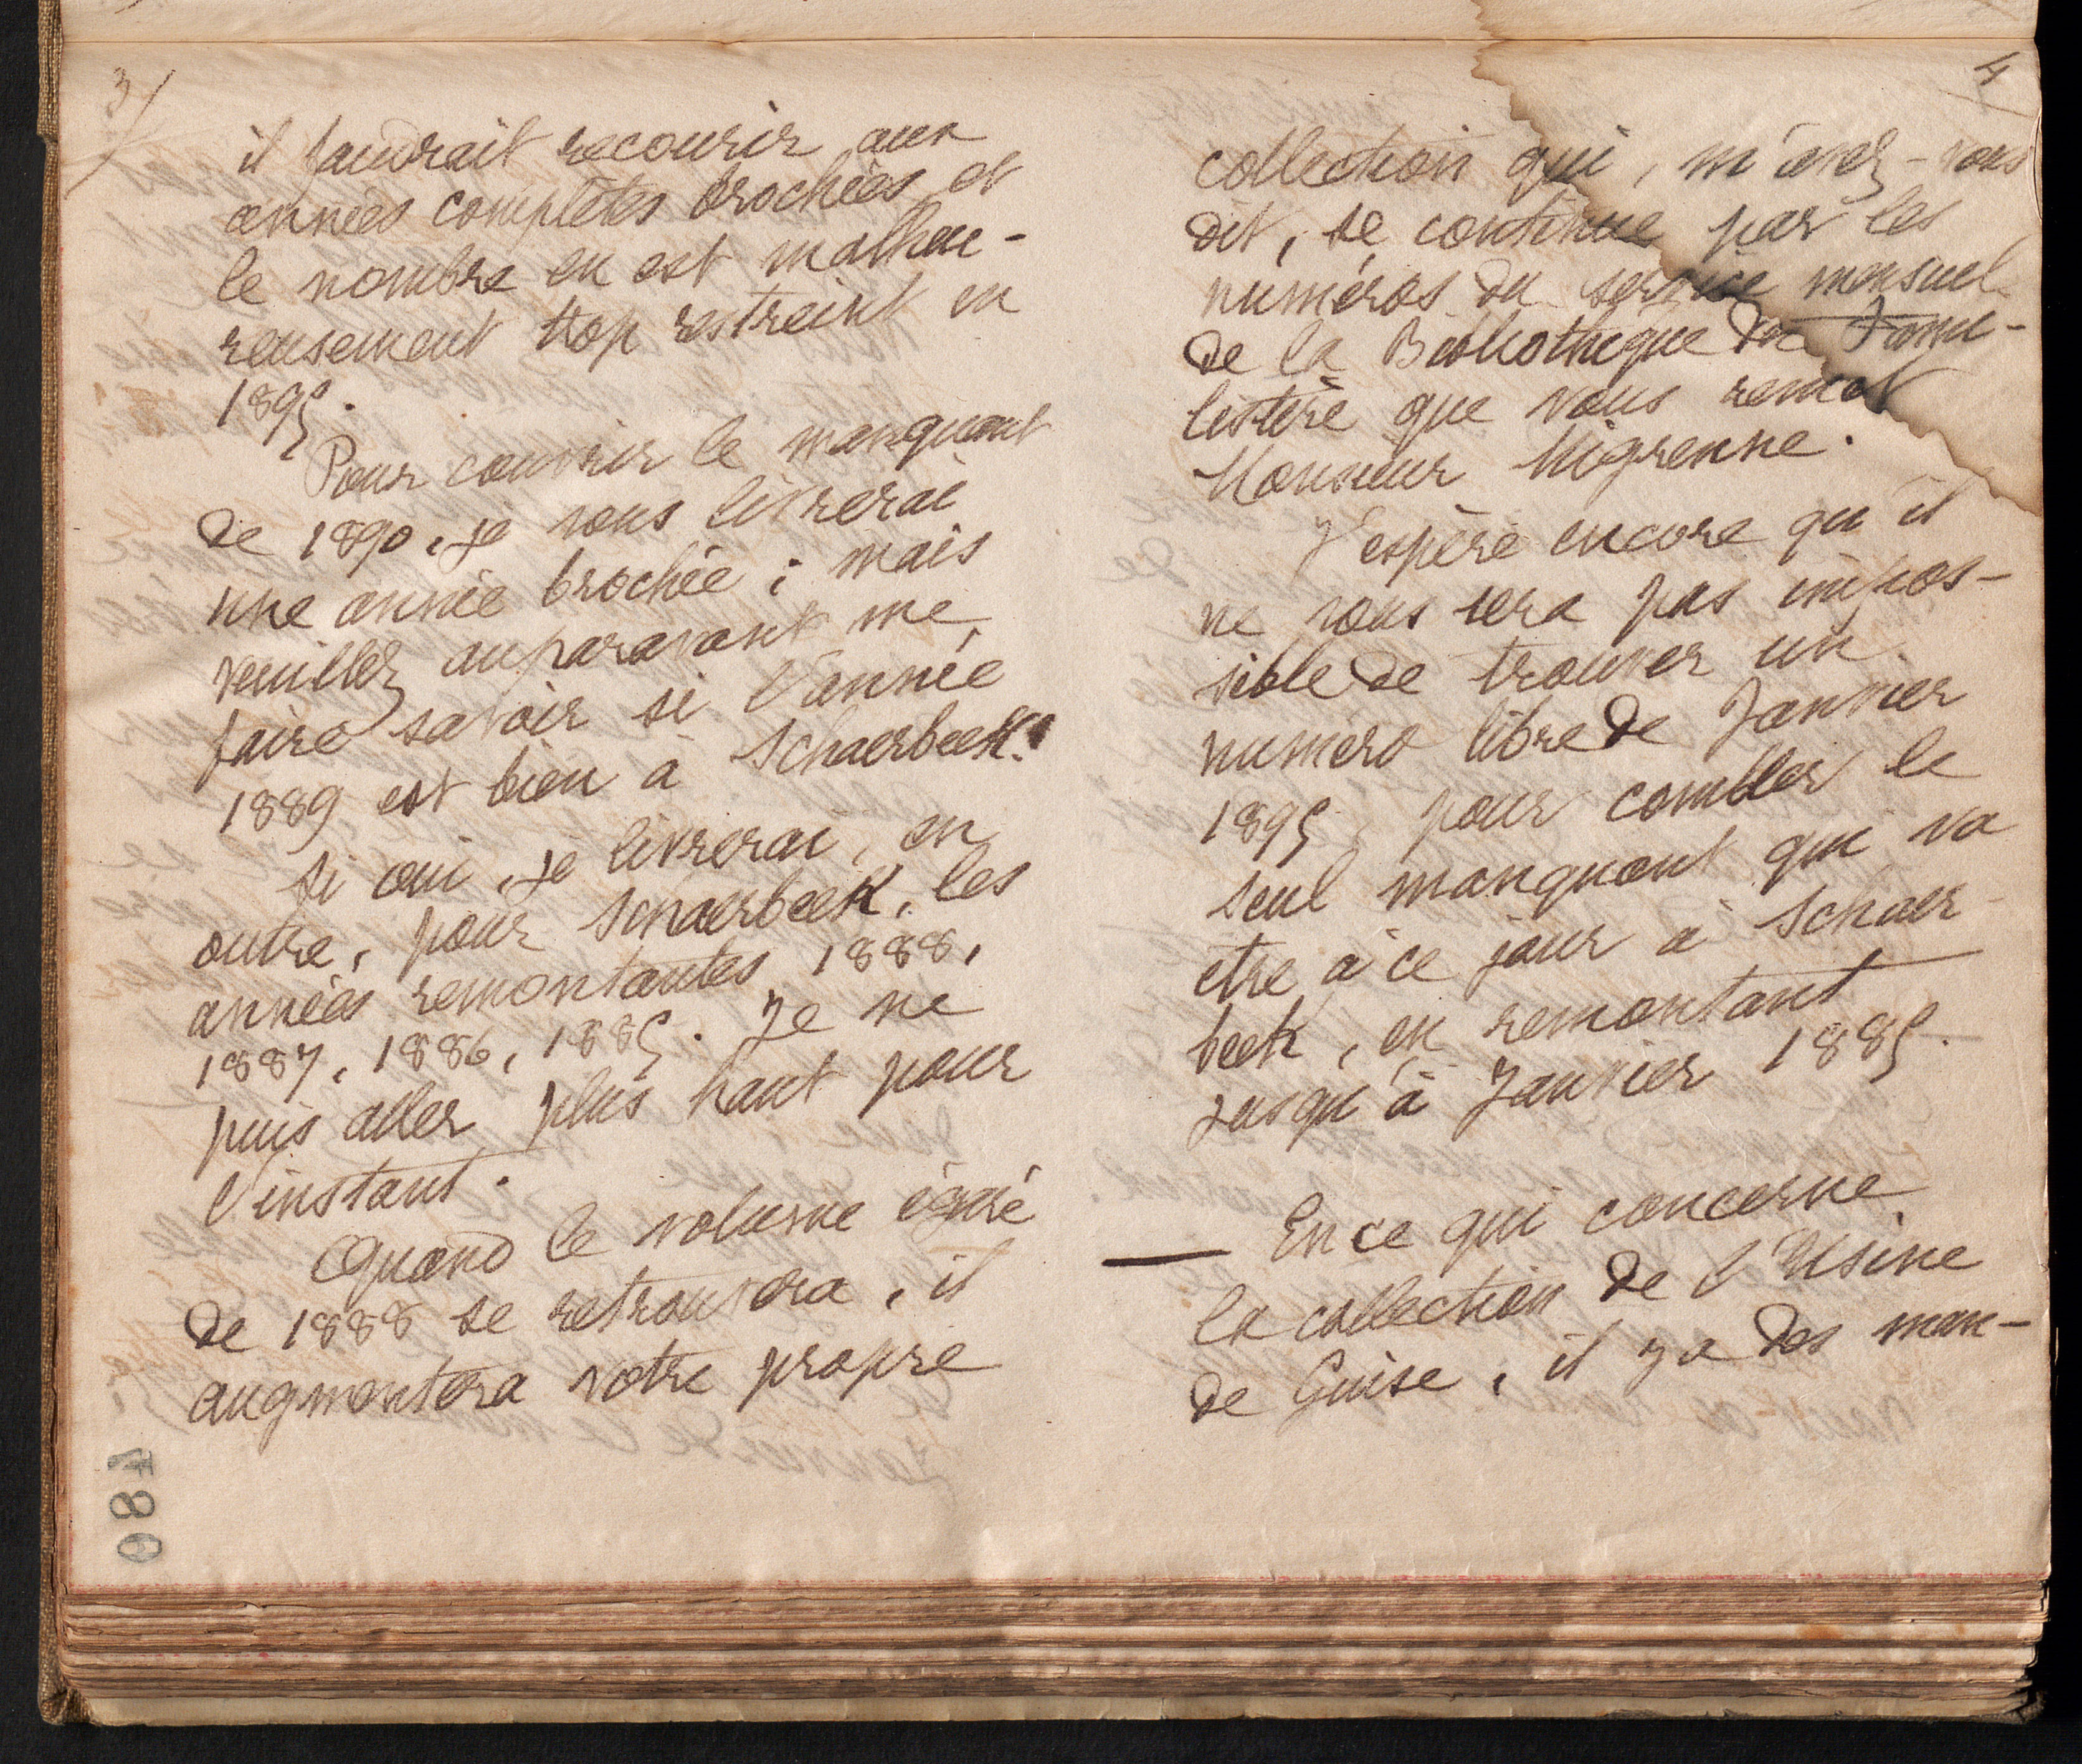 3/
il faudrait recourir aux
années complètes brochées et
le nombre en est malheu-
reusement trop restreint en
1895.
Pour couvrir le manquant
de 1890, je vous livrerai
une année brochée ; mais
veuillez auparavant me
faire savoir si l'année
1889 est bien à Schaerbeek.
Si oui, je livrerai, en
outre, pour Schaerbeek, les
années remontantes 1888,
1887, 1886, 1885. Je ne
puis aller plus haut pour
l'instant.
Quand le volume égaré
de 1888 se retrouvera, il
augmentera votre propre
480
4
collection qui, m'avez-vous
dit, se continue par les
numéros du service mensuel
de la Bibliothèque du Fami-
listère que vous remet
Monsieur Migrenne.
J'espère encore qu'il
ne vous sera pas impos-
sible de trouver un
numéro libre de Janvier
1895, pour combler le
seul manquant qui va
être à ce jour à Schaer-
beek, en remontant
jusqu'à Janvier 1885.
En ce qui concerne
la collection de l'Usine
de Guise, il y a des man-